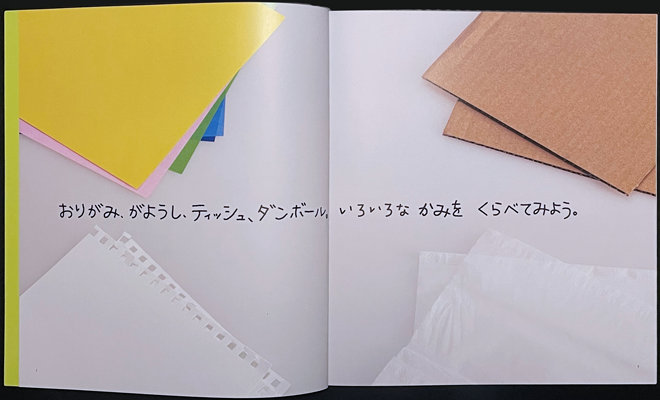 おりがみ、がようし、ティッシュ、ダンボール。いろいろな かみを くらべてみよう。